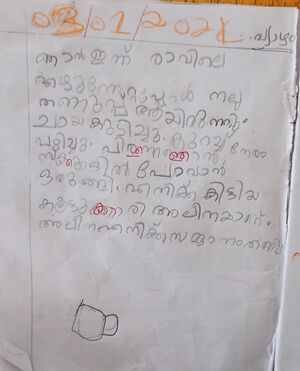 03/01/2024 വ്യാഴം
ഞാൻ ഇന്ന് രാവിലെ
എഴുന്നേറ്റപ്പോൾ നല്ല
തണുപ്പ് ആയിരുന്നു.
ചായ കുടിച്ചു. കുറച്ചു നേരം
പഠിച്ചു. പിന്നെ ഞാൻ
സ്കൂളിൽ പോവാൻ
ഒരുങ്ങി. എനിക്ക് കിട്ടിയ
കൂട്ടുകാരി അലീനയാണ്.
അലീന എനിക്ക് സമ്മാനം തന്നു.